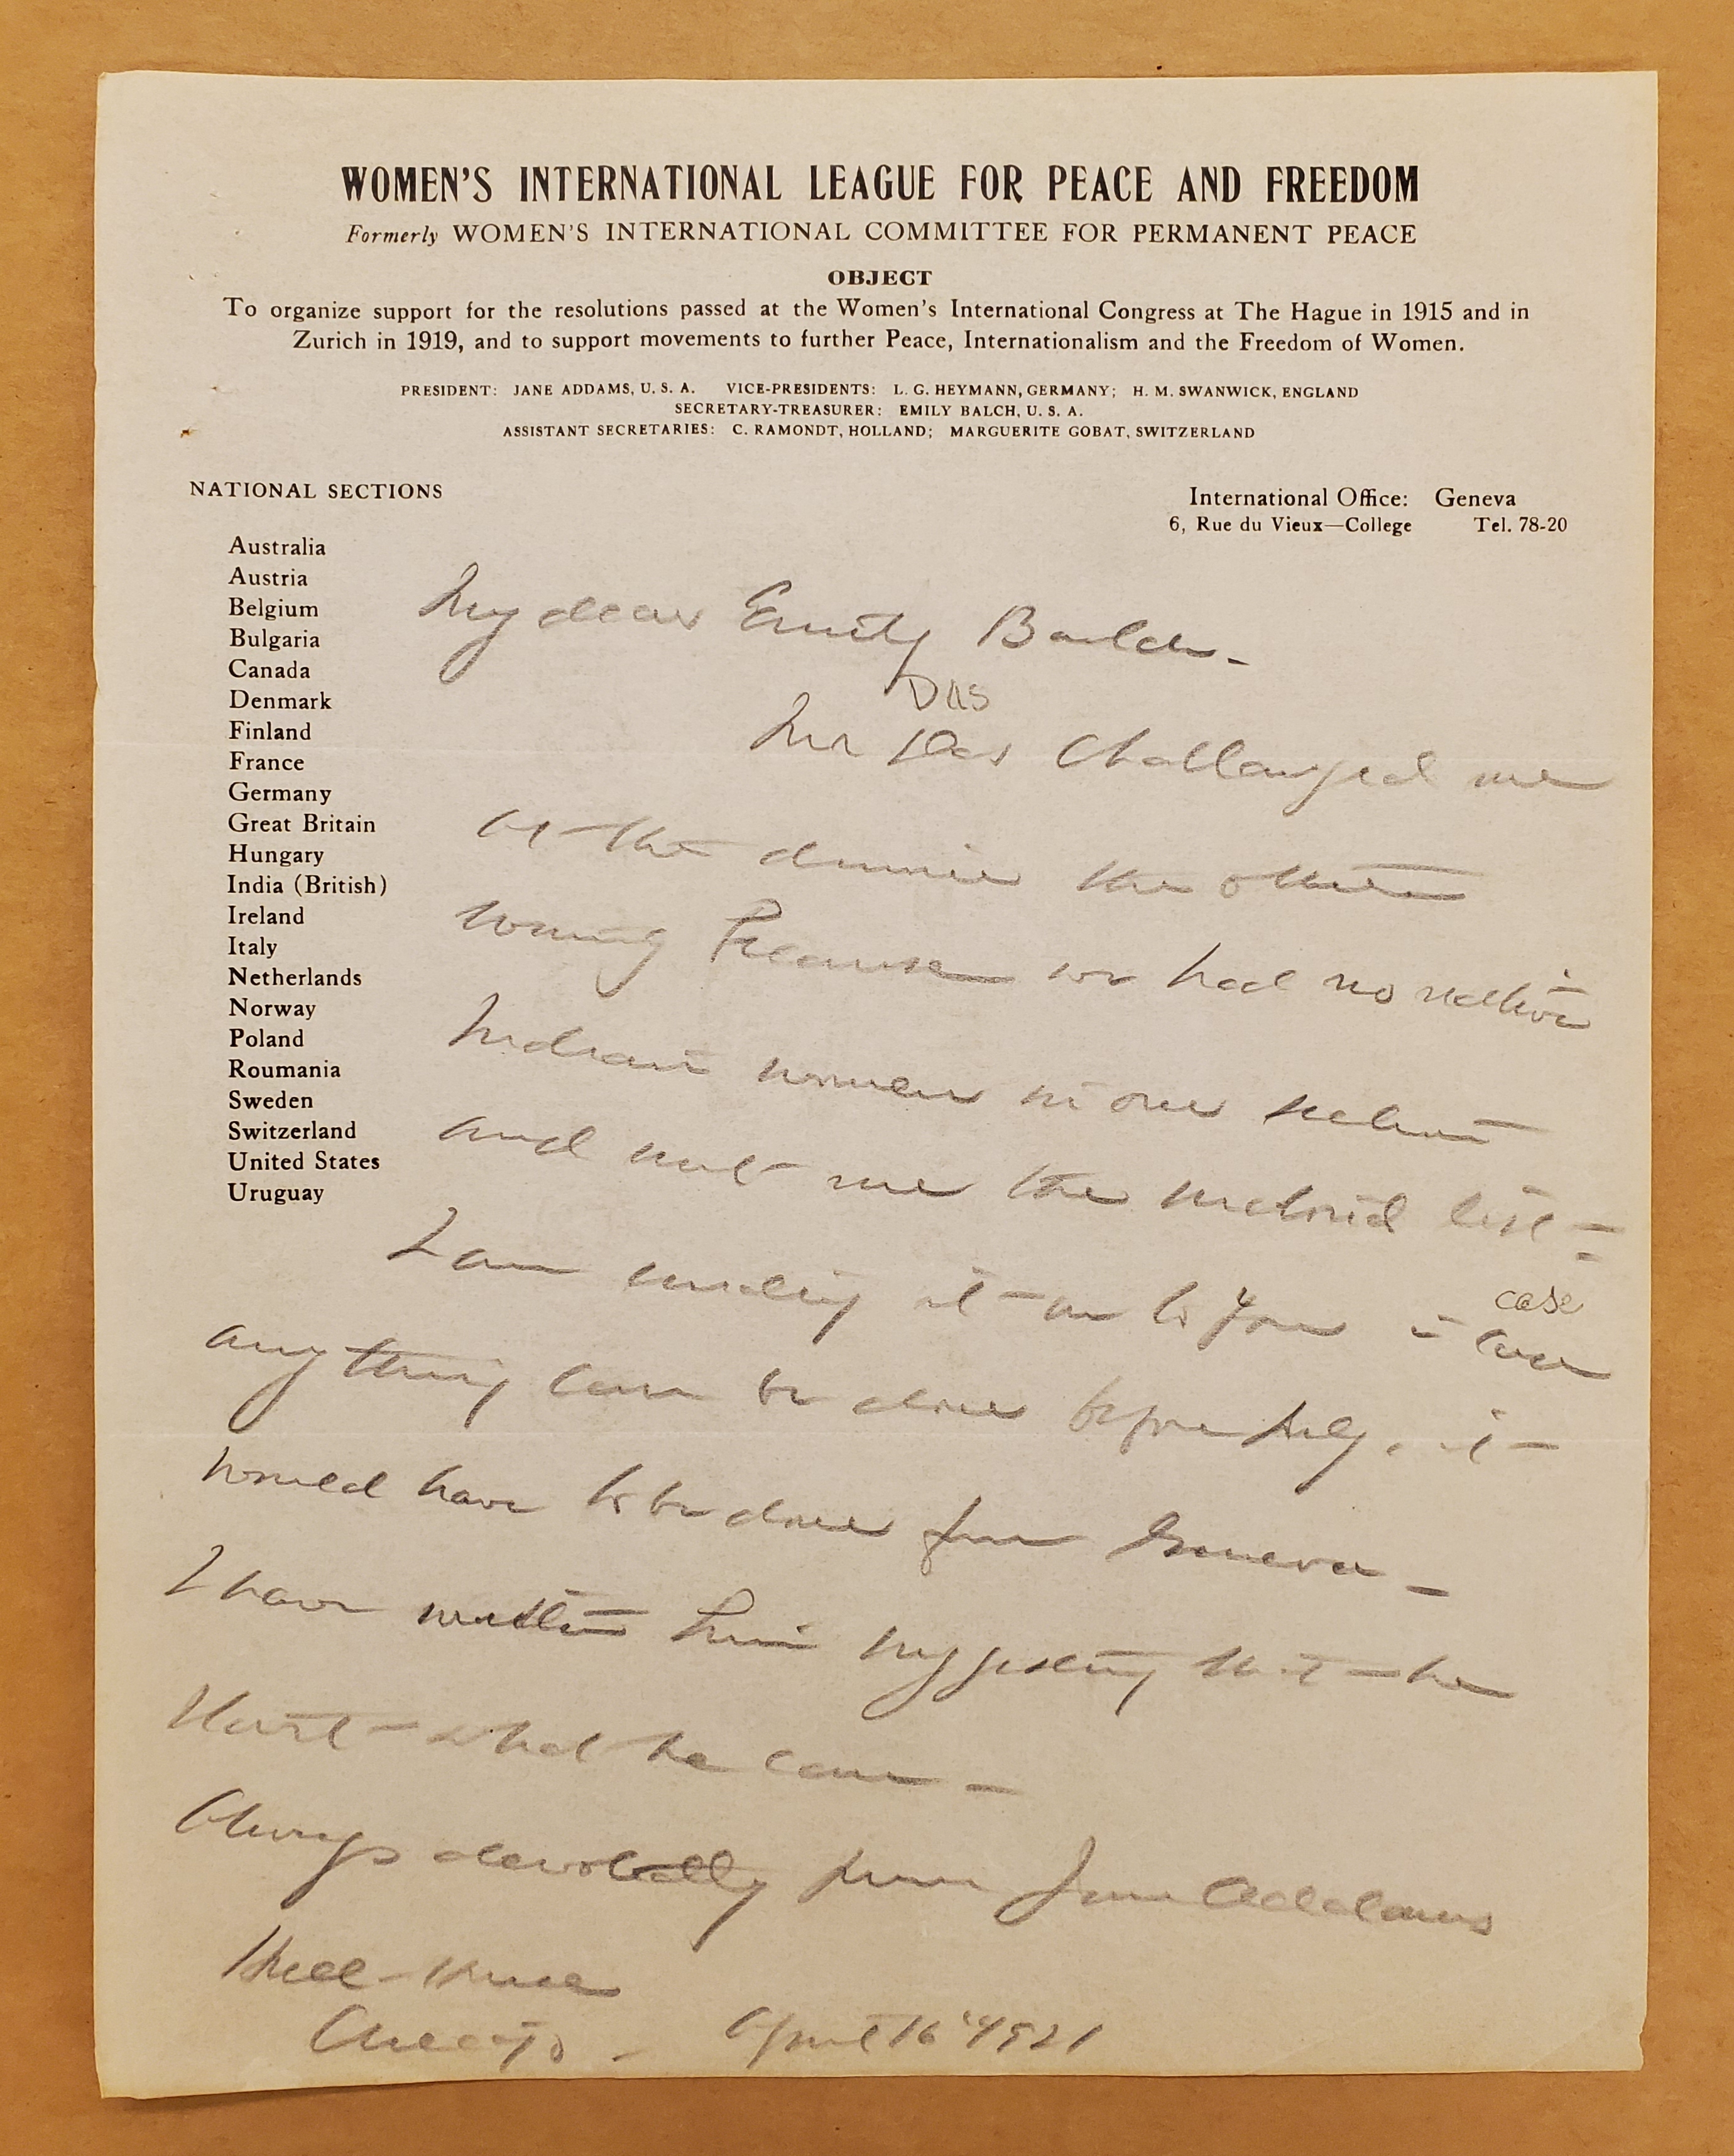 WOMEN'S INTERNATIONAL LEAGUE FOR PEACE AND FREEDOM
Formerly WOMEN'S INTERNATIONAL COMMITTEE FOR PERMANENT PEACE
OBJECT
To organize support for the resolutions passed at the Women's International Congress at The Hague in 1915 and in
Zurich in 1919, and to support movements to further Peace, Internationalism and the Freedom of Women.
PRESIDENT: JANE ADDAMS, U. S. A. VICE-PRESIDENTS: L. G. HEYMANN, GERMANY; H. M. SWANWICK, ENGLAND
SECRETARY-TREASURER: EMILY BALCH, U. S. A.
ASSISTANT SECRETARIES: C. RAMONDT, HOLLAND; MARGUERITE GOBAT, SWITZERLAND
NATIONAL SECTIONS
International Office: Geneva
6, Rue du Vieux—College Tel. 78-20
Australia
Austria
Belgium
Bulgaria
Canada
Denmark
Finland
France
Germany
Great Britain
Hungary
India (British)
Ireland
Italy
Netherlands
Norway
Poland
Roumania
Sweden
Switzerland
United States
Uruguay
My dear Emily Balch -
DAS
Mr Das challanged me
at the dinner the other
evening because we had no native
Indian women in our section
and sent me the enclosed list -
I am sending it on to you in case
case
anything can be done before July, it
would have to be done from Geneva -
I have written him suggesting that he
start what he can -
Always devotedly yours Jane Addams
Hull-House
Chicago - April 16" 1921